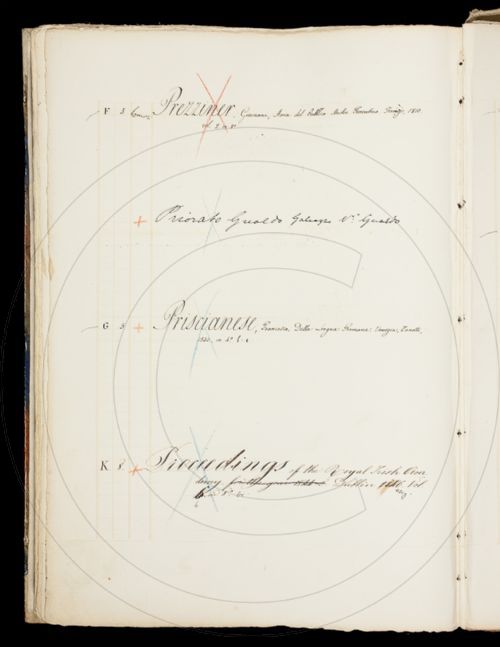 F 5 Prezziner, Giovanni, Storia del Pubblico Studio Fiorentino Firenze, 1810
vol. 2 in 8º
Priorato Gualdo Galeazzo Vi Gualdo
G 5 Priscianese, Francesco, Della Lingua Romana: Venezia, Zanetti,
1540, in 4º
K 8 Proceedings of the Royal Irish Aca
demy for the year Dublin